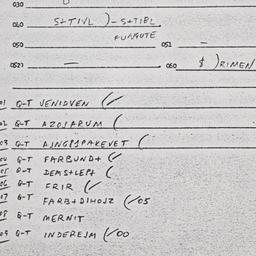 030
040 S+TIVL )-S+TIBL
FUNGUTE
050 — 052 —
052) — 060 $ )RIMEN
01 G-T VENIDVEN (/
02 G-T AZOJARUM (
03 G-T AJNG8JPAKEVET (
04 G-T FARBUND+ (/
05 G-T DEMS+LEP+ (
06 G-T FRIR (/
07 G-T FARB+DIHOJZ (/05
08 G-T MERNIT
09 G-T INDEREJM (/00